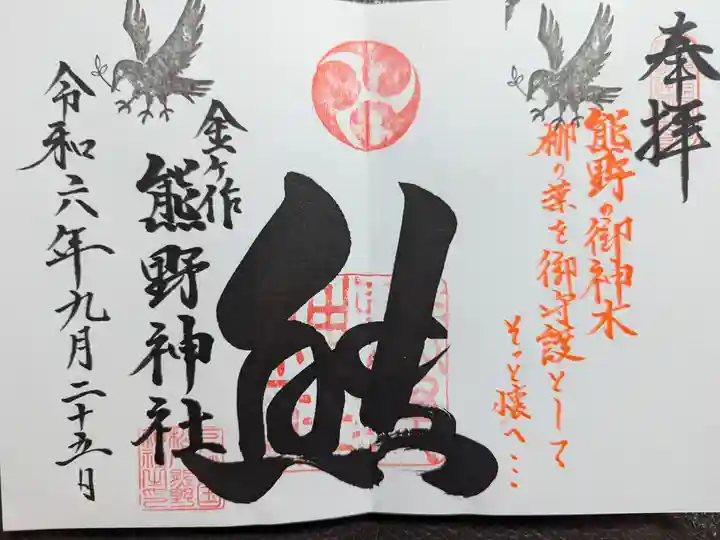 奉拝
熊野の御神木
梛の葉を御守護として
そっと懐へ…
熊
金ヶ作
熊野神社
令和六年九月二十五日